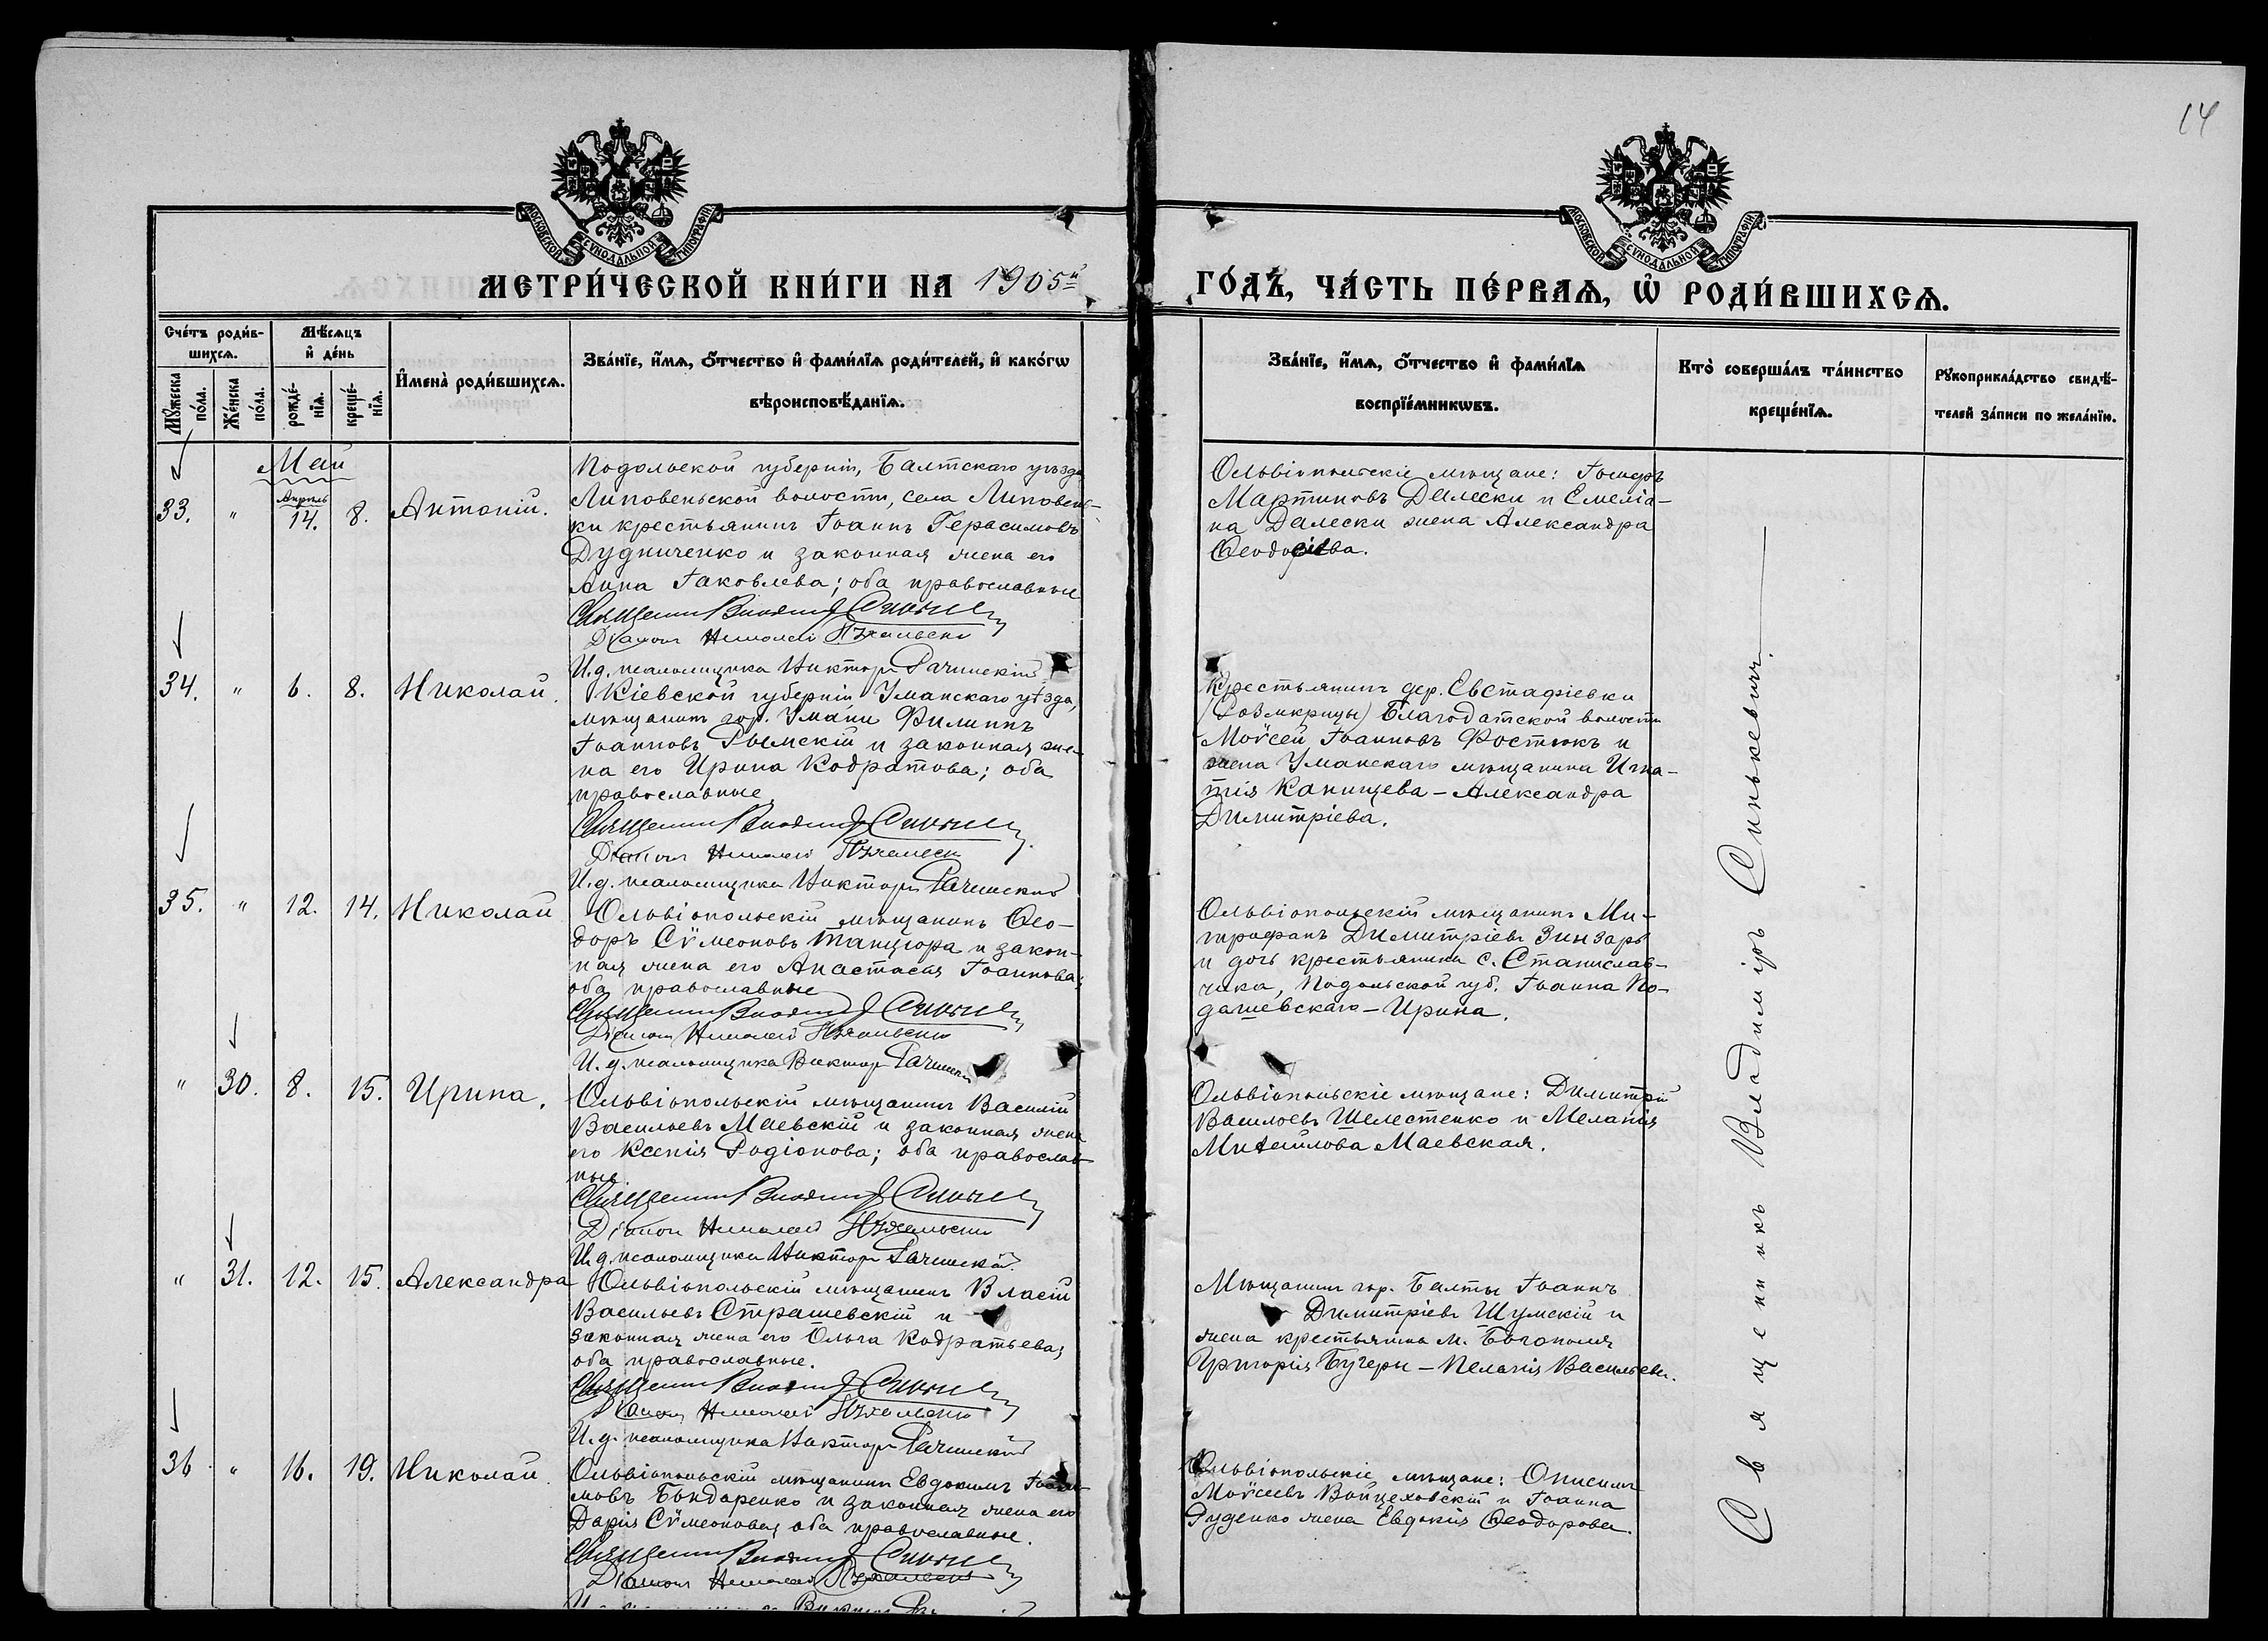 14
МОСКОВСКОЙ СѴНОДАЛЬНОЙ ТИПОГРАФІИ
МОСКОВСКОЙ СѴНОДАЛЬНОЙ ТИПОГРАФІИ
МЕТРИ́ЧЕСКОЙ КНИ́ГИ НА 1905й ГО́ДЪ, ЧА́СТЬ ПЕ́РВАѦ, Ѡ РОДИ́ВШИХСѦ.
Сче́тъ роди́в-
шихсѧ.
Мꙋ́жеска по́ла.
Же́нска по́ла.
Мѣ́сѧцъ
и҆ де́нь
рожде́-
нїѧ.
креще́-
нїѧ.
И҆мена̀ роди́вшихсѧ.
Зва́нїе, и҆́мѧ, ѻ҆́тчество и҆ фами́лїѧ роди́телей, и҆ како́гѡ
вѣроисповѣ́данїѧ.
Зва́нїе, и҆́мѧ, ѻ҆́тчество и҆ фами́лїѧ
воспрїе́мникѡвъ.
Кто̀ соверша́лъ та́инство
креще́нїѧ.
Рꙋкоприкла́дство свидѣ́-
телей за́писи по жела́нїю.
Май
33. " Апрѣль 14. 8. Антоній.
Подольской губерніи, Балтскаго уѣзда
Липовеньской волости, села Липовень-
ки крестьянинъ Іоаннъ Герасимовъ
Дудниченко и законная жена его
Анна Іаковлева; оба православные
Священникъ Владиміръ Синькевичъ
Діаконъ Николай
И.д. псаломщика Викторъ Рачинскій
Ольвіопольскіе мѣщане: Ісидоръ
Мартиновъ Далески и Емеліа-
на Далески жена Александра
Ѳеодосіева.
34. " 6. 8. Николай.
Кіевской губерніи Уманскаго уѣзда,
мѣщанинъ гор. Умани Филиппъ
Іоанновъ Рымскій и законная же-
на его Ирина Кодратова; оба
православные
Священникъ Владиміръ Синькевичъ
Діаконъ Николай
И.д. псаломщика Викторъ Рачинскій
Крестьянинъ дер. Евстафіевки
Благодатской волости
Моѵсей Іоанновъ Фостюкъ и
жена Уманскаго мѣщанина Игна-
тія Канищева - Александра
Димитріева.
35. " 12. 14. Николай
Ольвіопольскій мѣщанинъ Ѳео-
доръ Сѵмеоновъ Танцюра и закон-
ная жена его Анастасія Іоаннова;
оба православные
Священникъ Владиміръ Синькевичъ
Діаконъ Николай
И.д. псаломщика Викторъ Рачинскій
Ольвіопольскій мѣщанинъ Ми-
трофанъ Димитріевъ Зинзарь
и дочь крестьянина с. Станислав-
чика, Подольской губ. Іоанна По-
дашевскаго - Ирина.
" 30. 8. 15. Ирина.
Ольвіопольскій мѣщанинъ Василій
Васильевъ Маевскій и законная жена
его Ксенія Родіонова; оба православ-
ные.
Священникъ Владиміръ Синькевичъ
Діаконъ Николай
И.д. псаломщика Викторъ Рачинскій
Ольвіопольскіе мѣщане: Димитрій
Васильевъ Шелестенко и Меланія
Михайлова Маевская.
" 31. 12. 15. Александра
Ольвіопольскій мѣщанинъ Власій
Васильевъ Страшевскій и
законная жена его Ольга Кодратьева;
оба православные.
Священникъ Владиміръ Синькевичъ
Діаконъ Николай
И.д. псаломщика Викторъ Рачинскій
Мѣщанинъ гор. Балты Іоаннъ
Димитріевъ Шумскій и
жена крестьянина м. Богополя
Григорія Бугеры - Пелагія Васильева.
36 " 16. 19. Николай
Ольвіопольскій мѣщанинъ Евдокимъ
Бондаренко и законная жена его
Дарія Сѵмеонова; оба православные.
Священникъ Владиміръ Синькевичъ
Діаконъ Николай
Ольвіопольскіе мѣщане: Онисимъ
Моѵсеевъ Войцеховскій и Іоанна
Руденко жена Евдокія Ѳеодорова.
Священникъ Владиміръ Синькевичъ.